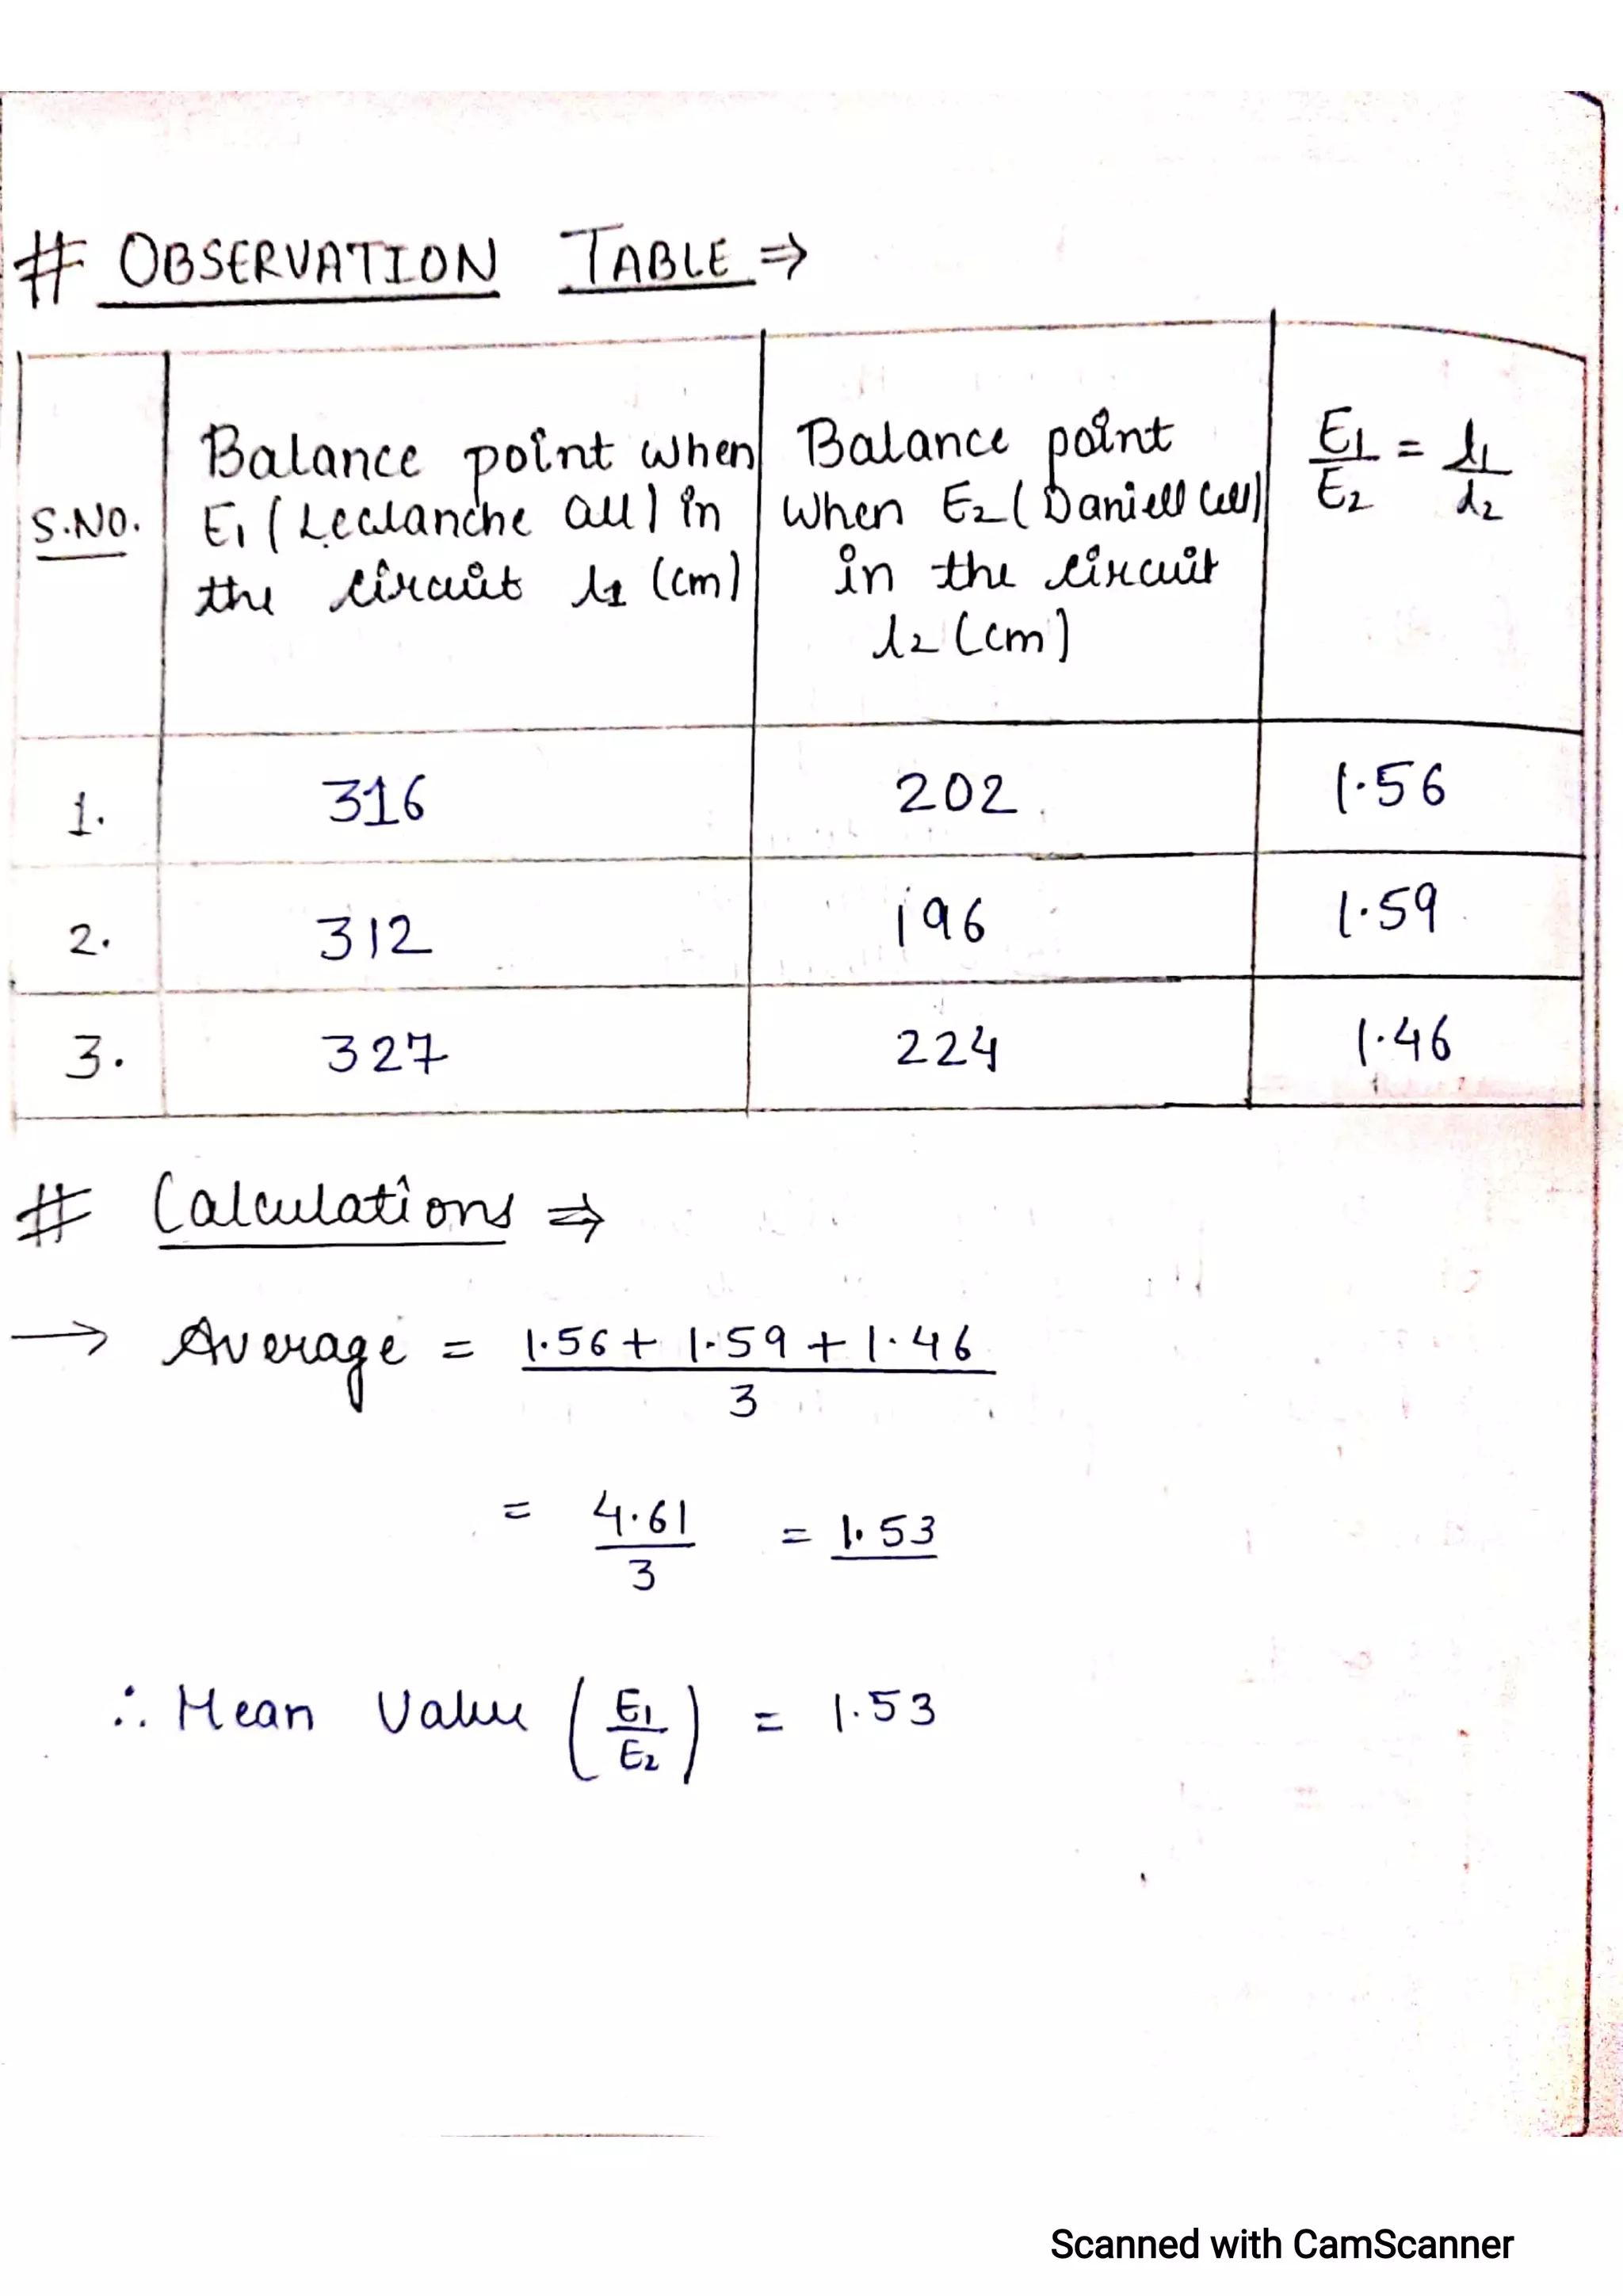 # OBSERVATION TABLE ⇒
S.NO. | Balance point when E₁ (Leclanche cell) in the circuit l₁ (cm) | Balance point when E₂ (Daniell cell) in the circuit l₂ (cm) | E₁/E₂ = l₁/l₂
1. | 316 | 202 | 1.56
2. | 312 | 196 | 1.59
3. | 327 | 224 | 1.46
# Calculations ⇒
→ Average = (1.56 + 1.59 + 1.46)/3
= 4.61/3 = 1.53
∴ Mean Value (E₁/E₂) = 1.53
Scanned with CamScanner